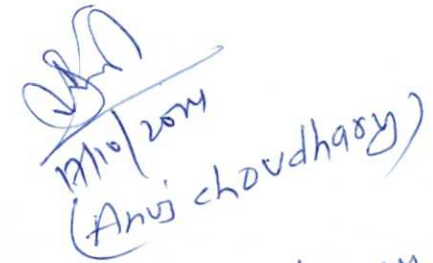 17/10/2014
(Anuj choudhary)